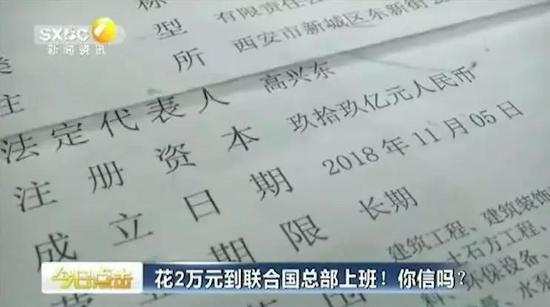 SXBC
新闻资讯
型 有限责任公
所 西安市新城区东新街
法定代表人 高兴东
注册资本 玖拾玖亿元人民币
成立日期 2018年11月05日
期限 长期
建筑工程、建筑装饰
土石方工程、
环保设备、
水泵
今日点击
花2万元到联合国总部上班!你信吗?